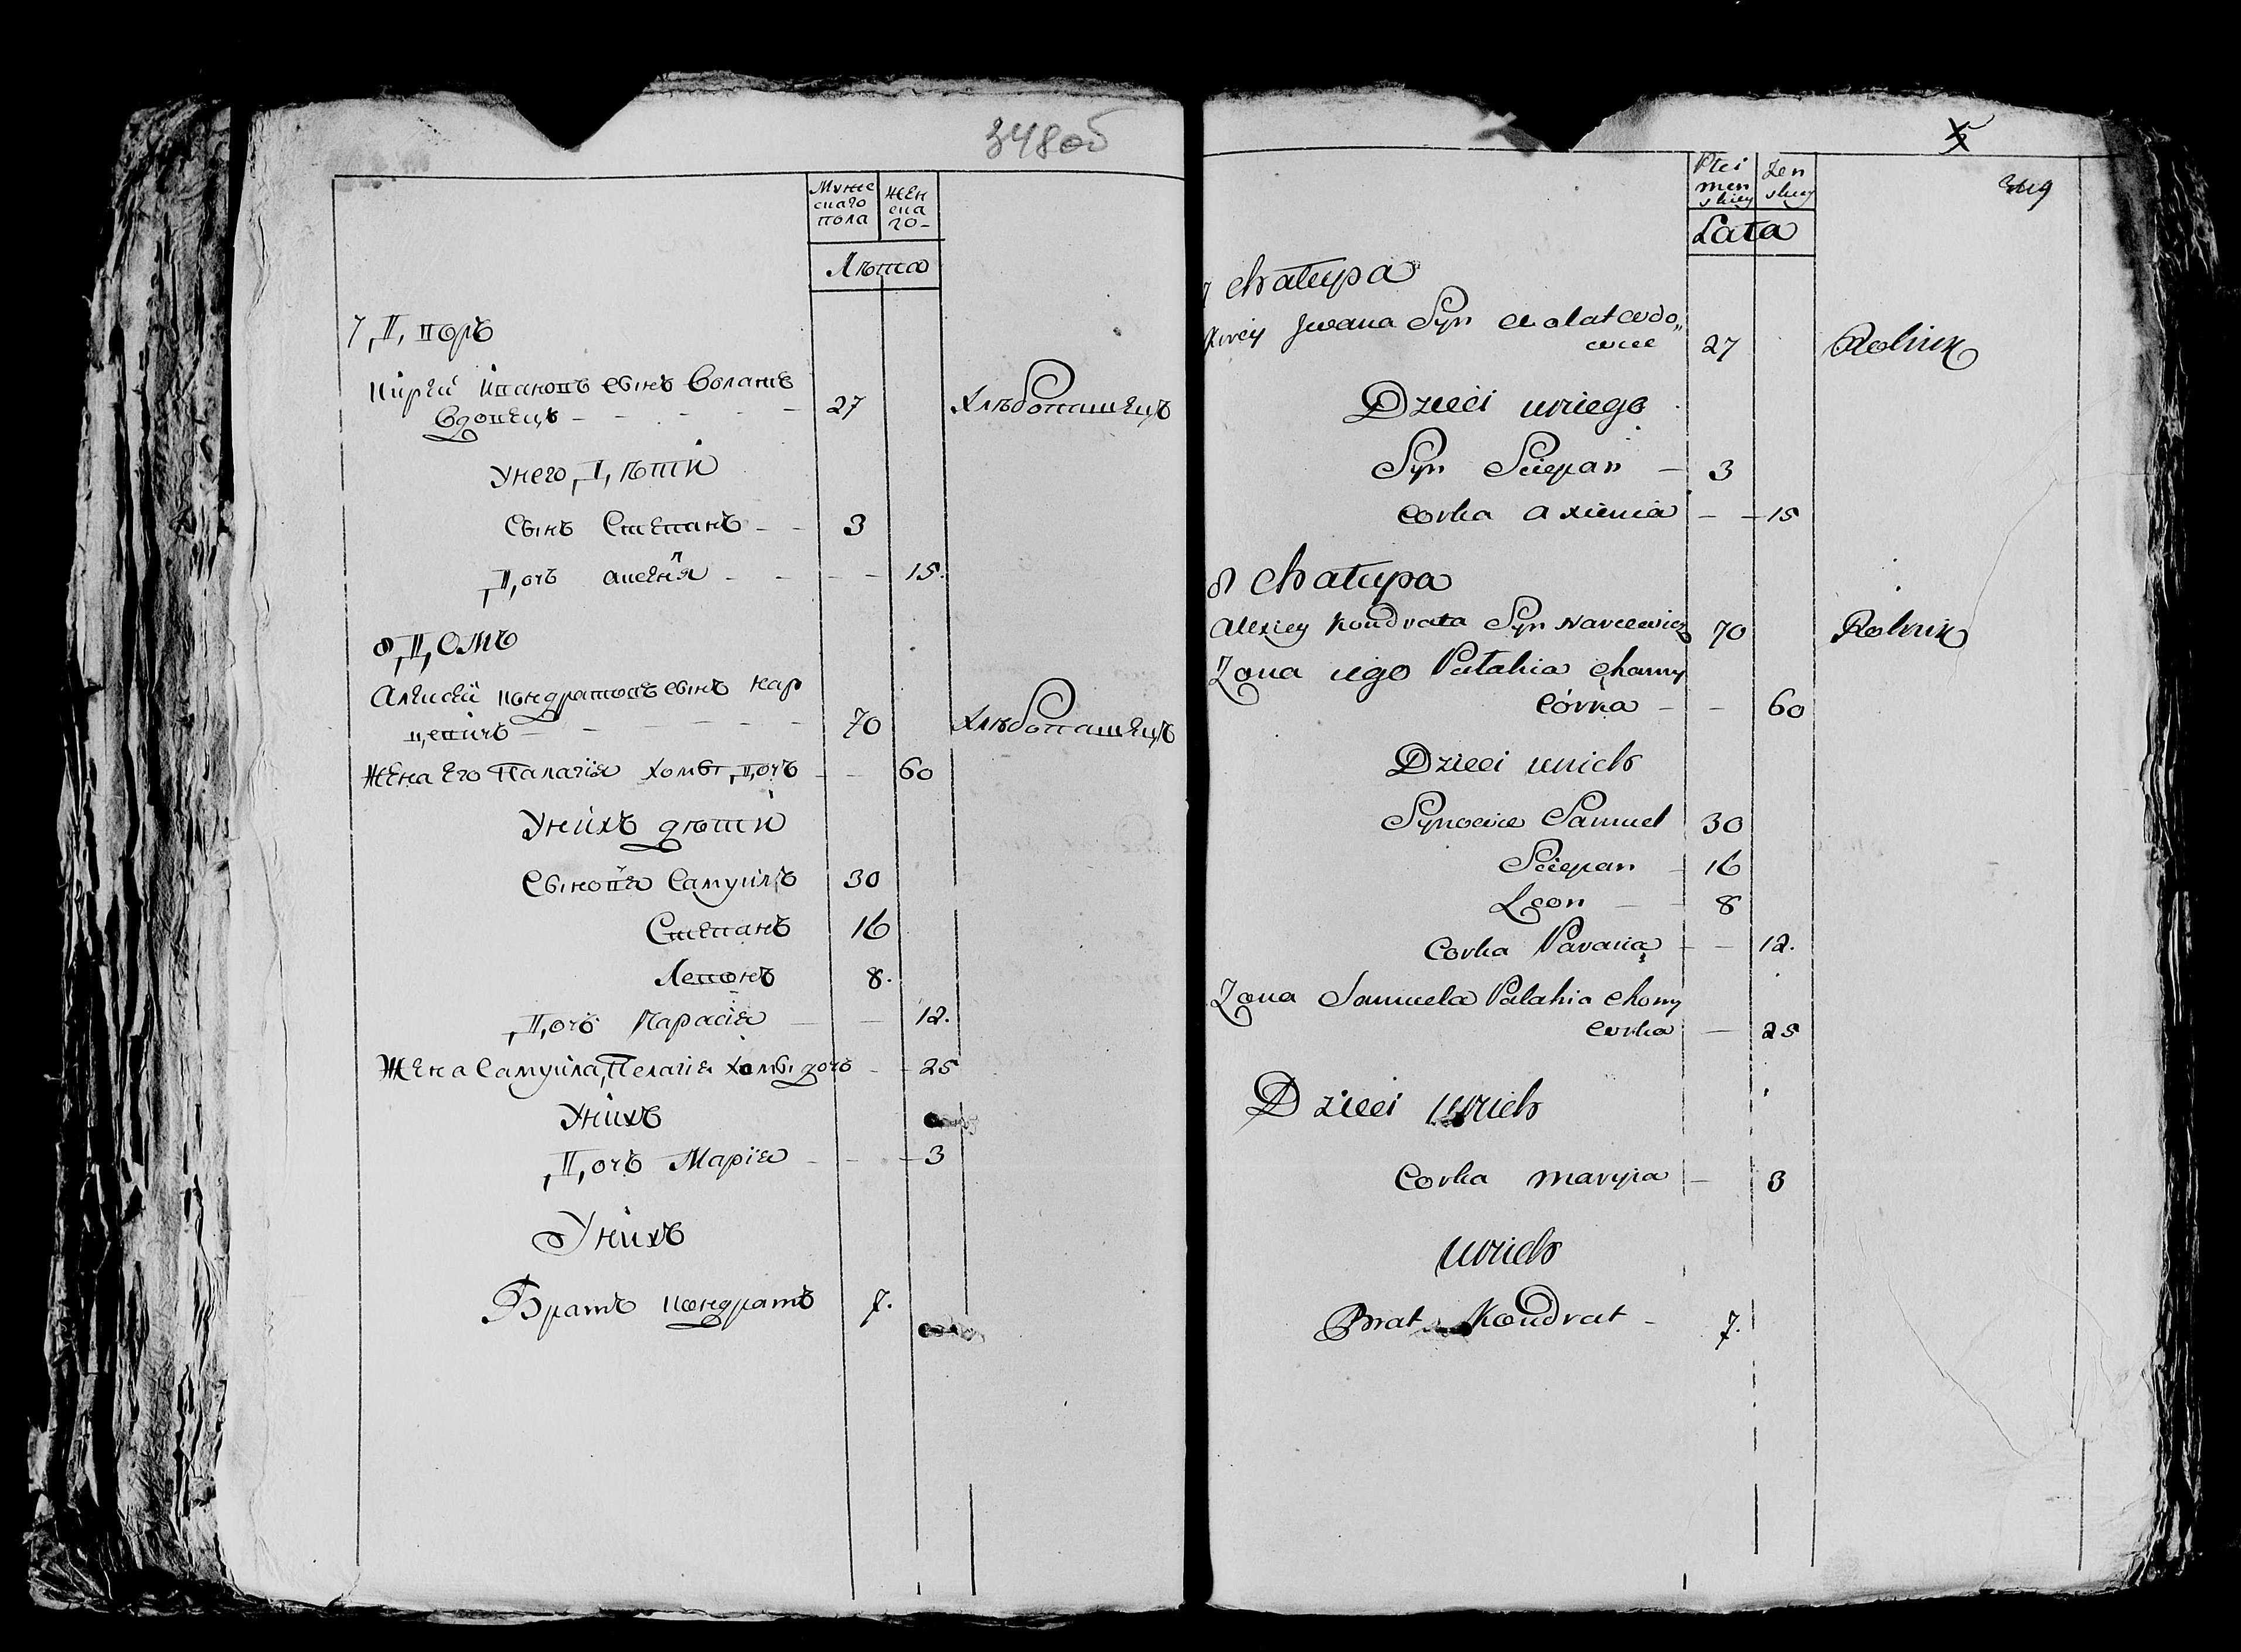 348об
Мужескаго пола
Женскаго
Лѣта
7, Дворъ
Киреи Ивановъ Сынъ Солани
вдовецъ 27 Хлѣбопашецъ
У него Дѣти
Сынъ Степанъ 3
Дочь 15.
8, Домъ
Алексѣй Кондратовъ сынъ Нар
цевичъ 70 Хлѣбопашецъ
Жена Его Палагія Хомы Дочь 60
У нихъ дѣти
Сыновья Самуилъ 30
Степанъ 16
Левонъ 8.
Дочь Парасія 12.
Жена Самуила, Пелагія Хомы дочь 25
У нихъ
Дочь Марія 3
У нихъ
Братъ Кондратъ 7.
Płci menskiey
Zenskiey
349
Lata
chatupa
Jwana Syn 27 Rolnik
Dzieci uniego
Syn Sciepan 3
Corka axienia 15
8 chatupa
Alexiey Kondrata Syn Narcewicz 70 Rolnik
Zona iego Palahia chomy
Córka 60
Dzieci unich
Synowie Samuel 30
Sciepan 16
Leon 8
Corka 12.
Zona Samuela Palahia chomy
corka 25
Dzieci unich
Corka maryia 3
unich
Brat Kondrat 7.